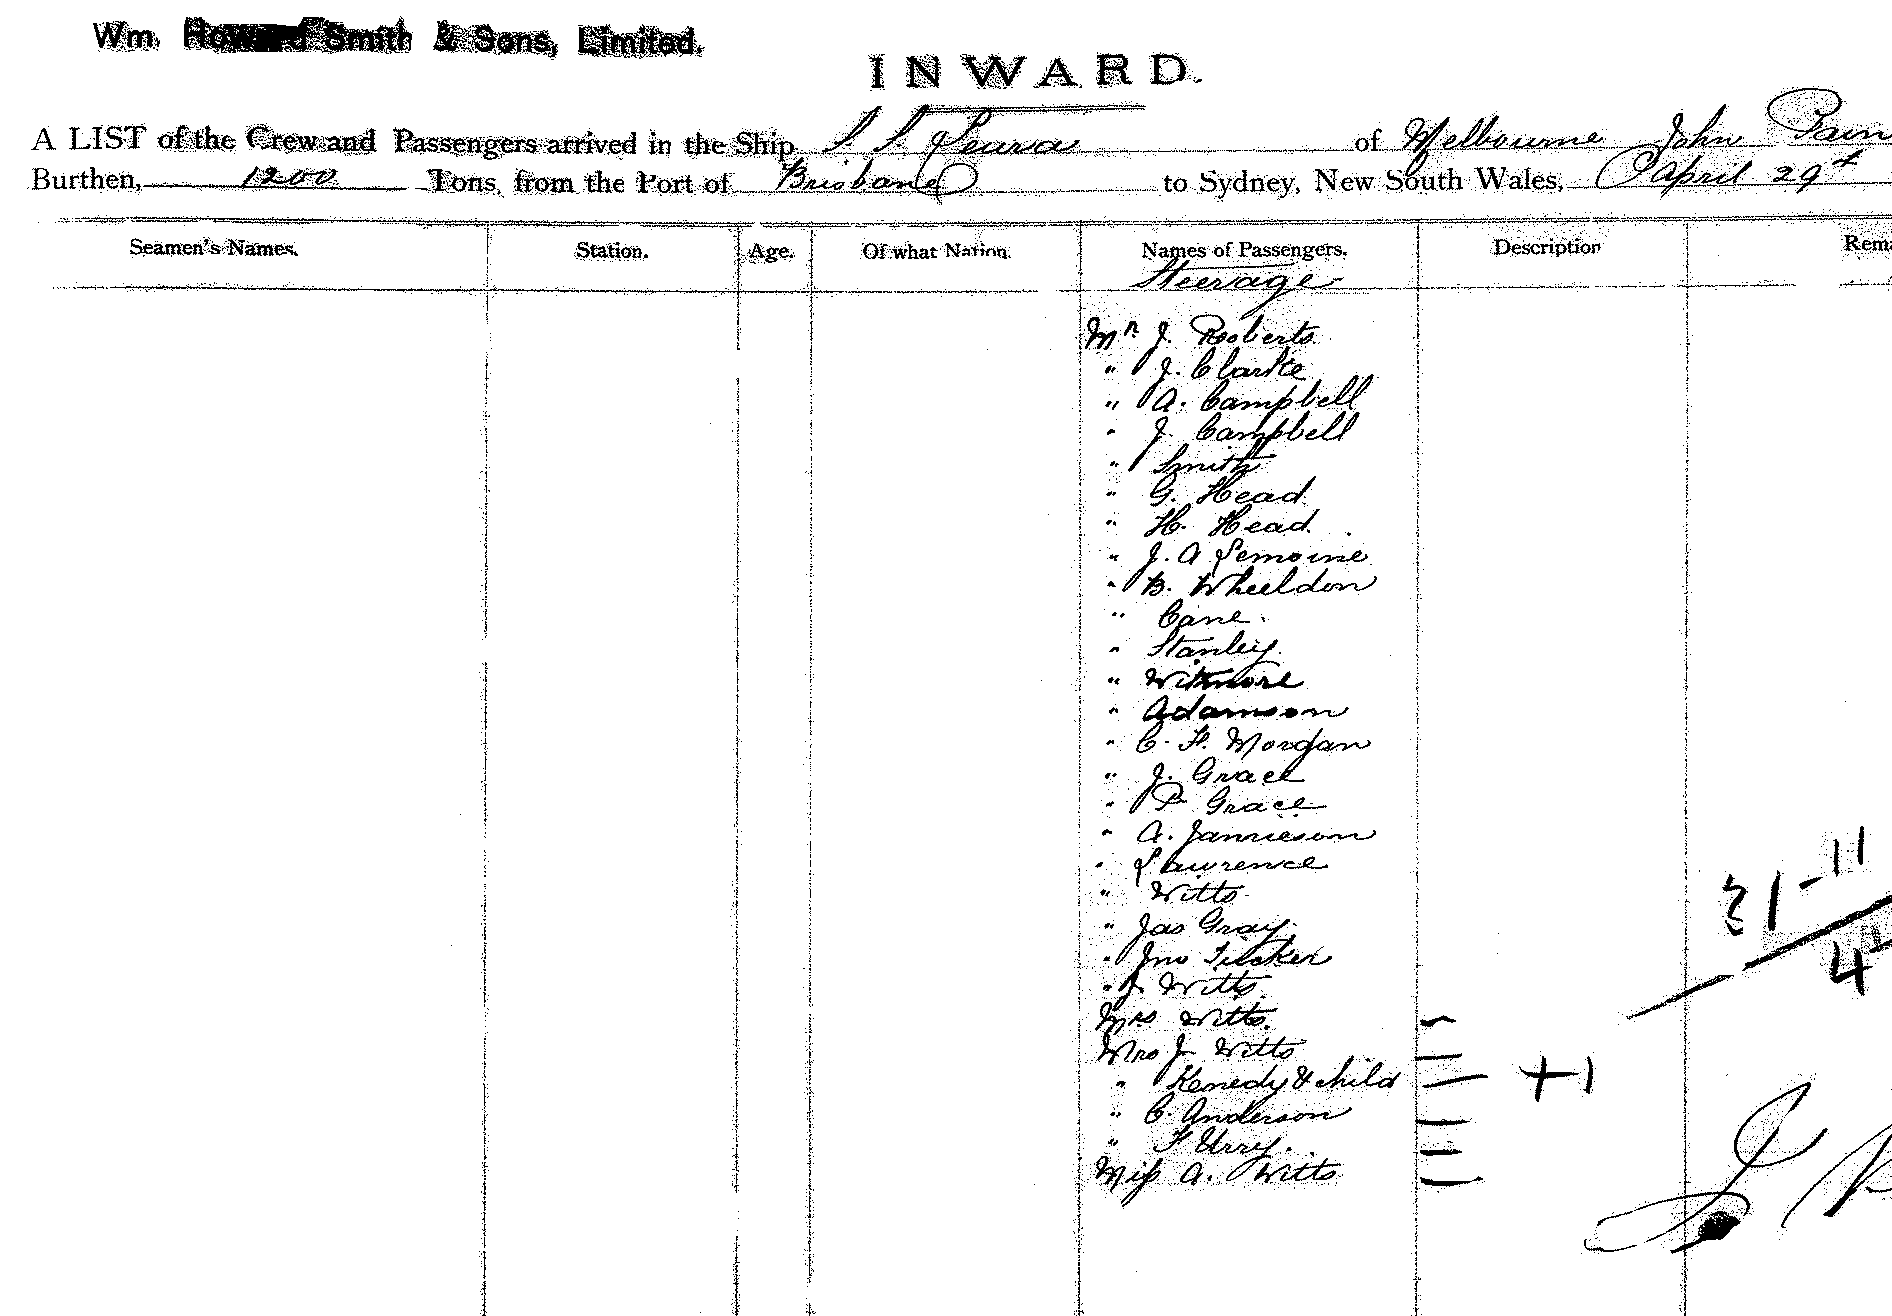 Wm. Howard Smith & Sons, Limited.
INWARD.
A LIST of the Crew and Passengers arrived in the Ship S. S. Leura of Melbourne John Pain
Burthen, 1200 Tons, from the Port of Brisbane to Sydney, New South Wales, April 29th
Seamen's Names. Station. Age. Of what Nation. Names of Passengers. Description Rema
Steerage
Mr J. Roberts
" J. Clarke
" A. Campbell
" J. Campbell
" Smith
" G. Head
" H. Head
" J. A Lemoine
" B. Wheeldon
" Cane
" Stanley
" Witmore
" Adamson
" C. F. Morgan
" J. Grace
" P Grace
" A. Jamieson
" Lawrence
" Witts
" Jas Gray
" Jno Tucker
" J Witts
Mrs Witts
Mrs J Witts
" Kenedy & child
" C. Anderson
" F Urry.
Miss A. Witts
+1
21 11
4